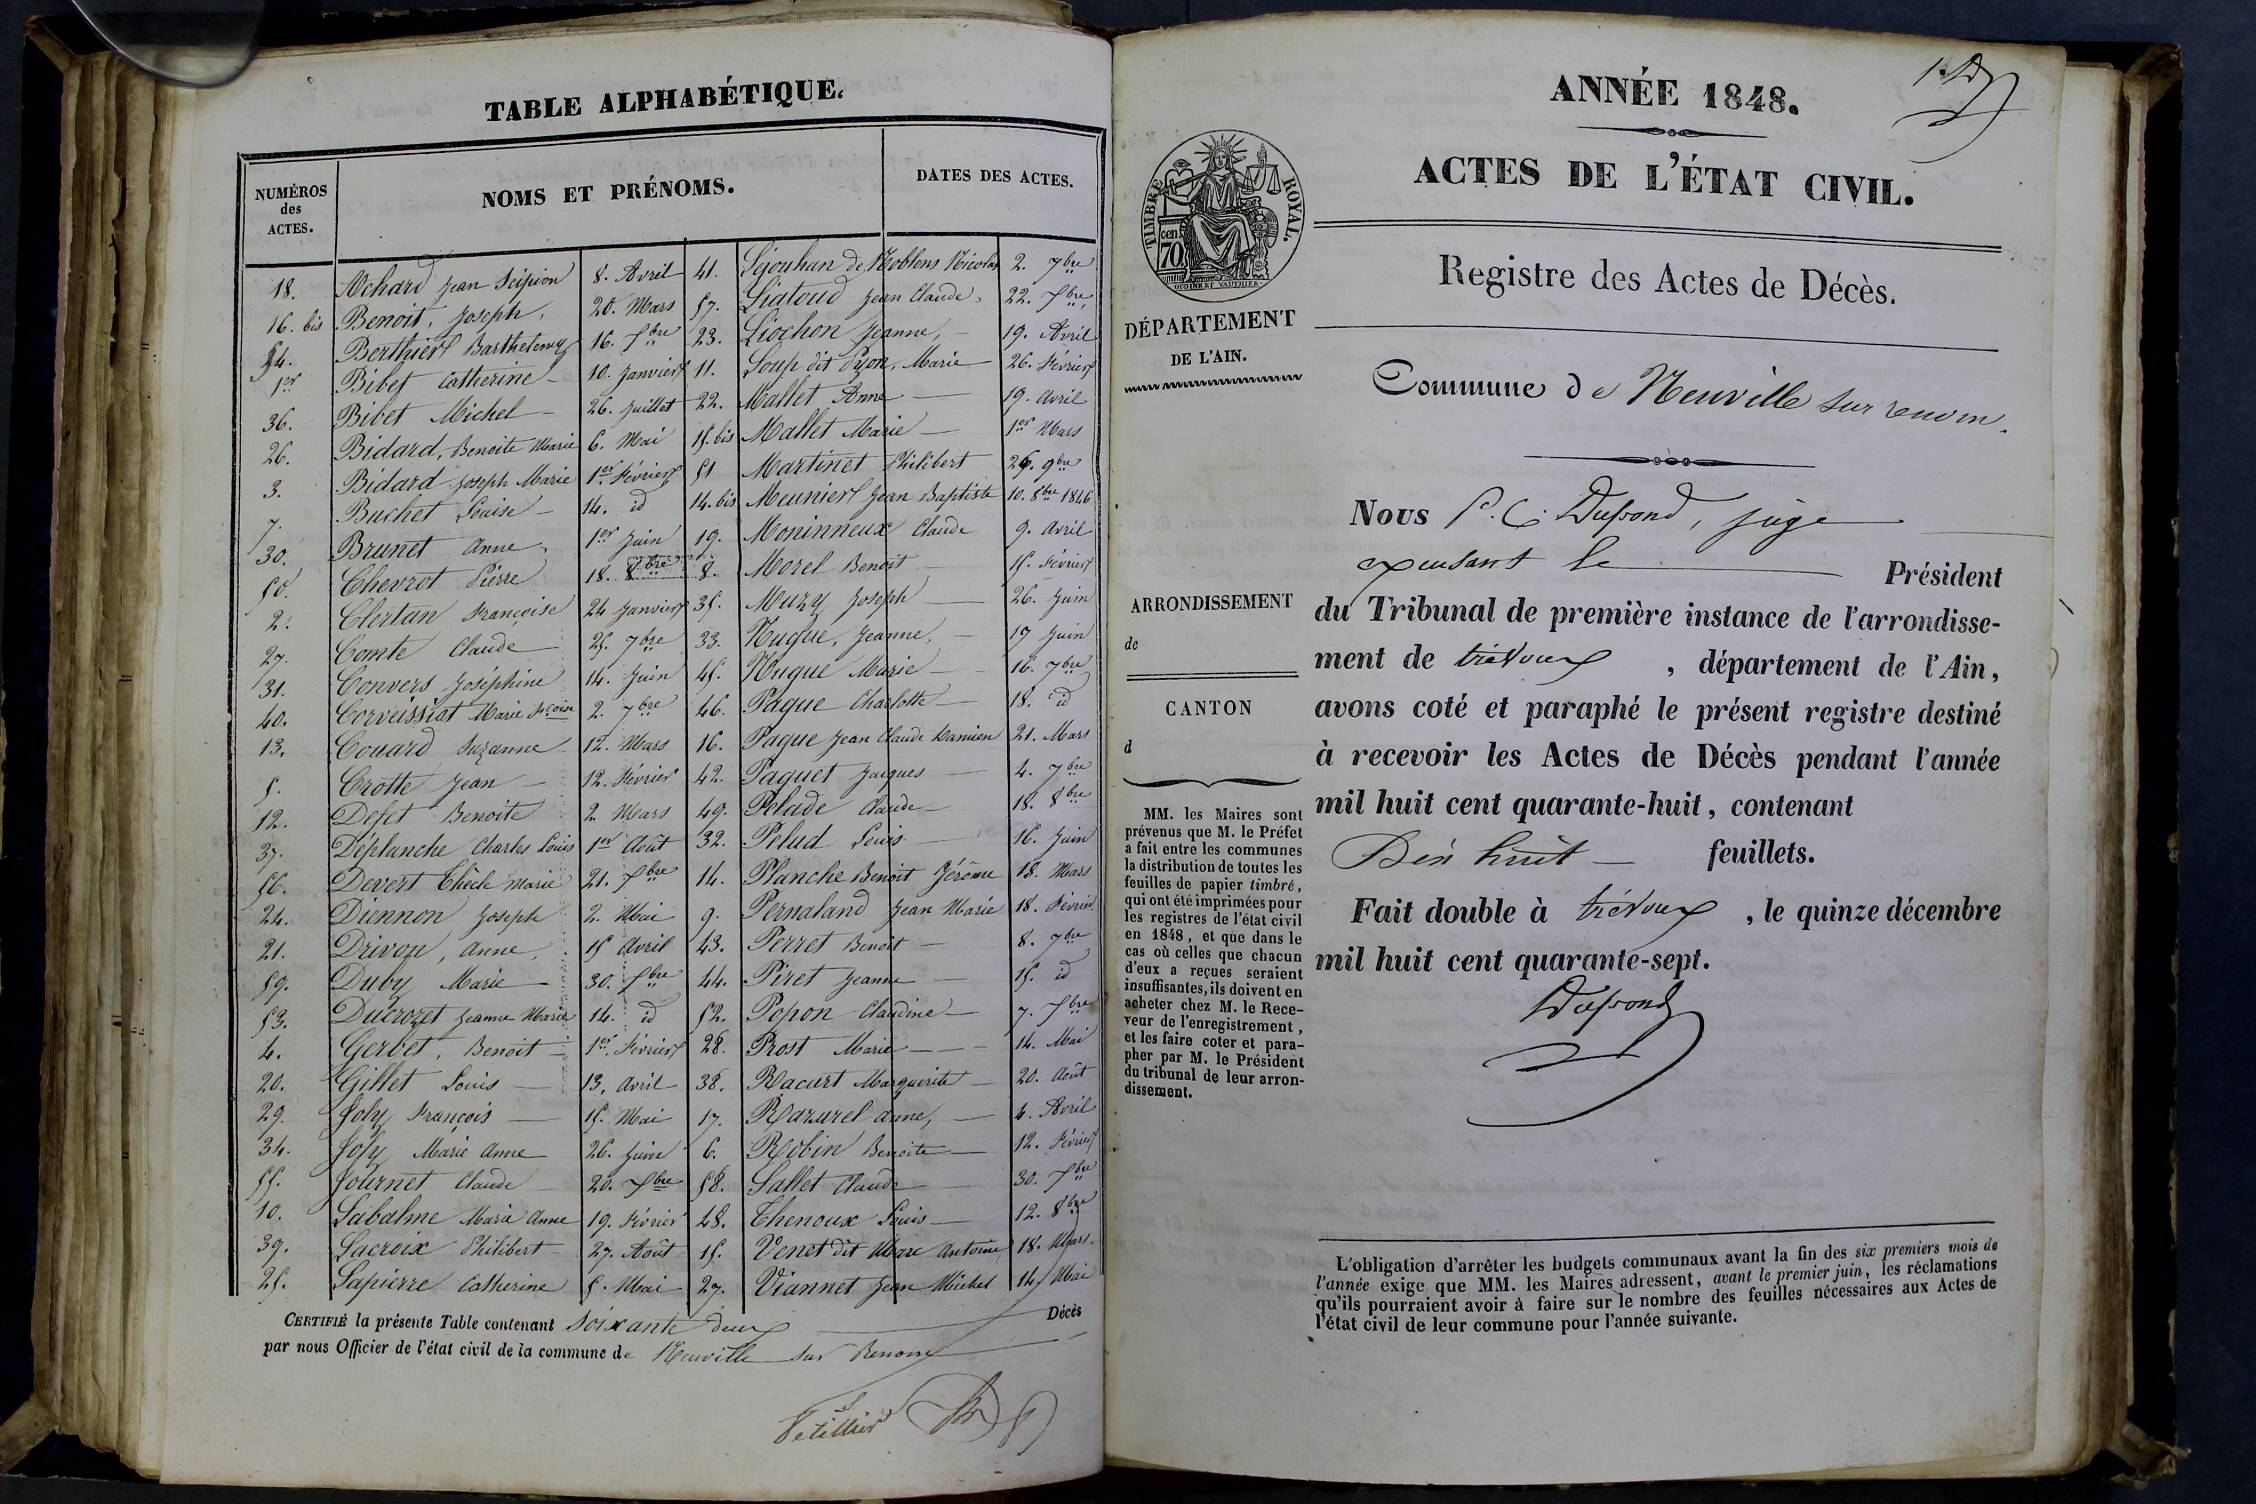 TABLE ALPHABÉTIQUE.
NUMÉROS
des
ACTES.
NOMS ET PRÉNOMS.
DATES DES ACTES.
18. Achard Jean Scipion 8. Avril
16. bis Benoit, Joseph, 20. Mars
54. Berthier Barthelemy 16. Xbre
1er Bibet Catherine 10. Janvier
36. Bibet Michel 26. Juillet
26. Bidard, Benoite Marie 6. Mai
3. Bidard Joseph Marie 1er Février
7. Buchet Louise 14. id
30. Brunet Anne 1er Juin
50. Chevrot Pierre 18. 8bre
2. Clertan Françoise 24 Janvier
27. Comte Claude 25. 7bre
31. Convers Joséphine 14. Juin
40. Corveissiat Marie Fcoise 2. 7bre
13. Couard Suzanne 12. Mars
5. Crotte Jean 12. Février
12. Defet Benoite 2 Mars
37. Déplanche Charles Louis 1er Août
56. Devert Thècle Marie 21. Xbre
24. Diennon Joseph 2. Mai
21. Drivon, Anne, 15 Avril
59. Duby Marie 30. Xbre
53. Ducrozet Jeanne Marie 14. id
4. Gerbet, Benoit 1er Février
20. Gillet Louis 13. Avril
29. Joly François 15. Mai
34. Joly Marie Anne 26. Juin
55. Journet Claude 20. Xbre
10. Labalme Marie Anne 19. Février
39. Lacroix Philibert 27. Août
25. Lapierre Catherine 5. Mai
41. Lejouhan de Noblens Nicolas 2. 7bre
57. Liatoud Jean Claude, 22. Xbre
23. Liochon Jeanne, 19. Avril
11. Loup dit Dyon, Marie 26. Février
22. Mallet Anne 19. Avril
15. bis Mallet Marie 1er Mars
51 Martinet Philibert 26. 9bre
14. bis Meunier Jean Baptiste 10. 8bre 1846
19. Moninneux Claude 9. Avril
8. Morel Benoit 15. Février
35. Muzy Joseph 26. Juin
33. Nuque, Jeanne, 17 Juin
45. Nuque Marie 16. 7bre
46. Paque Charlotte 18. id
16. Paque Jean Claude Damien 21. Mars
42. Paquet Jacques 4. 7bre
49. Pelade Claude 18. 8bre
32. Pelud Louis 16. Juin
14. Planche Benoit Jérôme 18. Mars
9. Pernaland Jean Marie 18. Février
43. Perret Benoit 8. 7bre
44. Piret Jeanne 15. id
52. Popon Claudine 7. Xbre
28. Prost Marie 14. Mai
38. Racurt Marguerite 20. Août
17. Razurel Anne, 4. Avril
6. Robin Benoite 12. Février
58. Sallet Claude 30. Xbre
48. Thenoux Louis 12. 8bre
15. Venet dit Mare Antoine 18. Mars.
27. Viannet Jean Michel 14 Mai
CERTIFIÉ la présente Table contenant soixante deux Décès
par nous Officier de l'état civil de la commune de Neuville sur Renom
ANNÉE 1848.
ACTES DE L'ÉTAT CIVIL.
TIMBRE ROYAL.
cen
70
Registre des Actes de Décès.
DÉPARTEMENT
DE L'AIN.
Commune de Neuville sur renom.
Nous P. C. Dupond, juge
expensant le Président
du Tribunal de première instance de l'arrondisse-
ment de trévoux, département de l'Ain,
avons coté et paraphé le présent registre destiné
à recevoir les Actes de Décès pendant l'année
mil huit cent quarante-huit, contenant
Dix huit feuillets.
Fait double à trévoux, le quinze décembre
mil huit cent quarante-sept.
Dupond
ARRONDISSEMENT
de
CANTON
d
MM. les Maires sont
prévenus que M. le Préfet
a fait entre les communes
la distribution de toutes les
feuilles de papier timbré,
qui ont été imprimées pour
les registres de l'état civil
en 1848, et que dans le
cas où celles que chacun
d'eux a reçues seraient
insuffisantes, ils doivent en
acheter chez M. le Rece-
veur de l'enregistrement,
et les faire coter et para-
pher par M. le Président
du tribunal de leur arron-
dissement.
L'obligation d'arrêter les budgets communaux avant la fin des six premiers mois de
l'année exige que MM. les Maires adressent, avant le premier juin, les réclamations
qu'ils pourraient avoir à faire sur le nombre des feuilles nécessaires aux Actes de
l'état civil de leur commune pour l'année suivante.